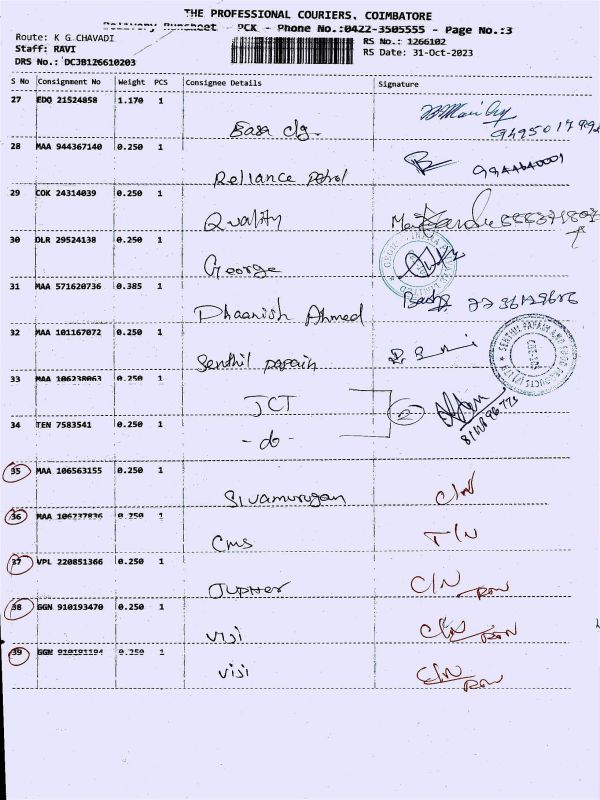 THE PROFESSIONAL COURIERS, COIMBATORE
Delivery Runsheet - PCK - Phone No.:0422-3505555 - Page No.:3
Route: K G CHAVADI
RS No.: 1266102
Staff: RAVI
RS Date: 31-Oct-2023
DRS No.: DCJB126610203
S No Consignment No Weight PCS Consignee Details Signature
27 EDQ 21524858 1.170 1
Easa clg.
28 MAA 944367140 0.250 1
Reliance Petrol
29 COK 24314039 0.250 1
Quality
30 DLR 29524138 0.250 1
George
31 MAA 571620736 0.385 1
Dhaanish Ahmed
32 MAA 101167072 0.250 1
Senthil papain
33 MAA 106238063 0.250 1
JCT
34 TEN 7583541 0.250 1
- do -
35 MAA 106563155 0.250 1
Sivamurugan C/N
36 MAA 106237836 0.250 1
Cms T/N
37 VPL 220851366 0.250 1
Jupiter C/N
38 GGN 910193470 0.250 1
Viji C/N
39 GGN 910191194 0.250 1
Viji C/N